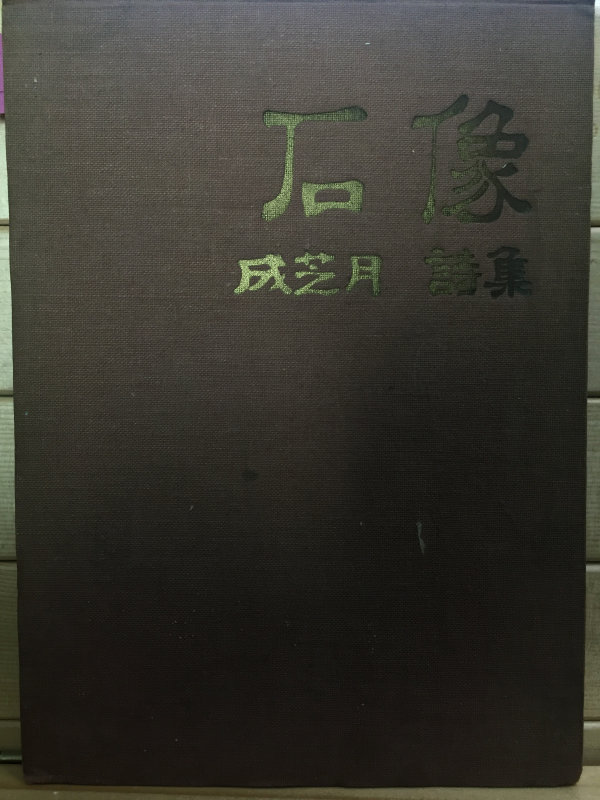 石像
成芝月 詩集